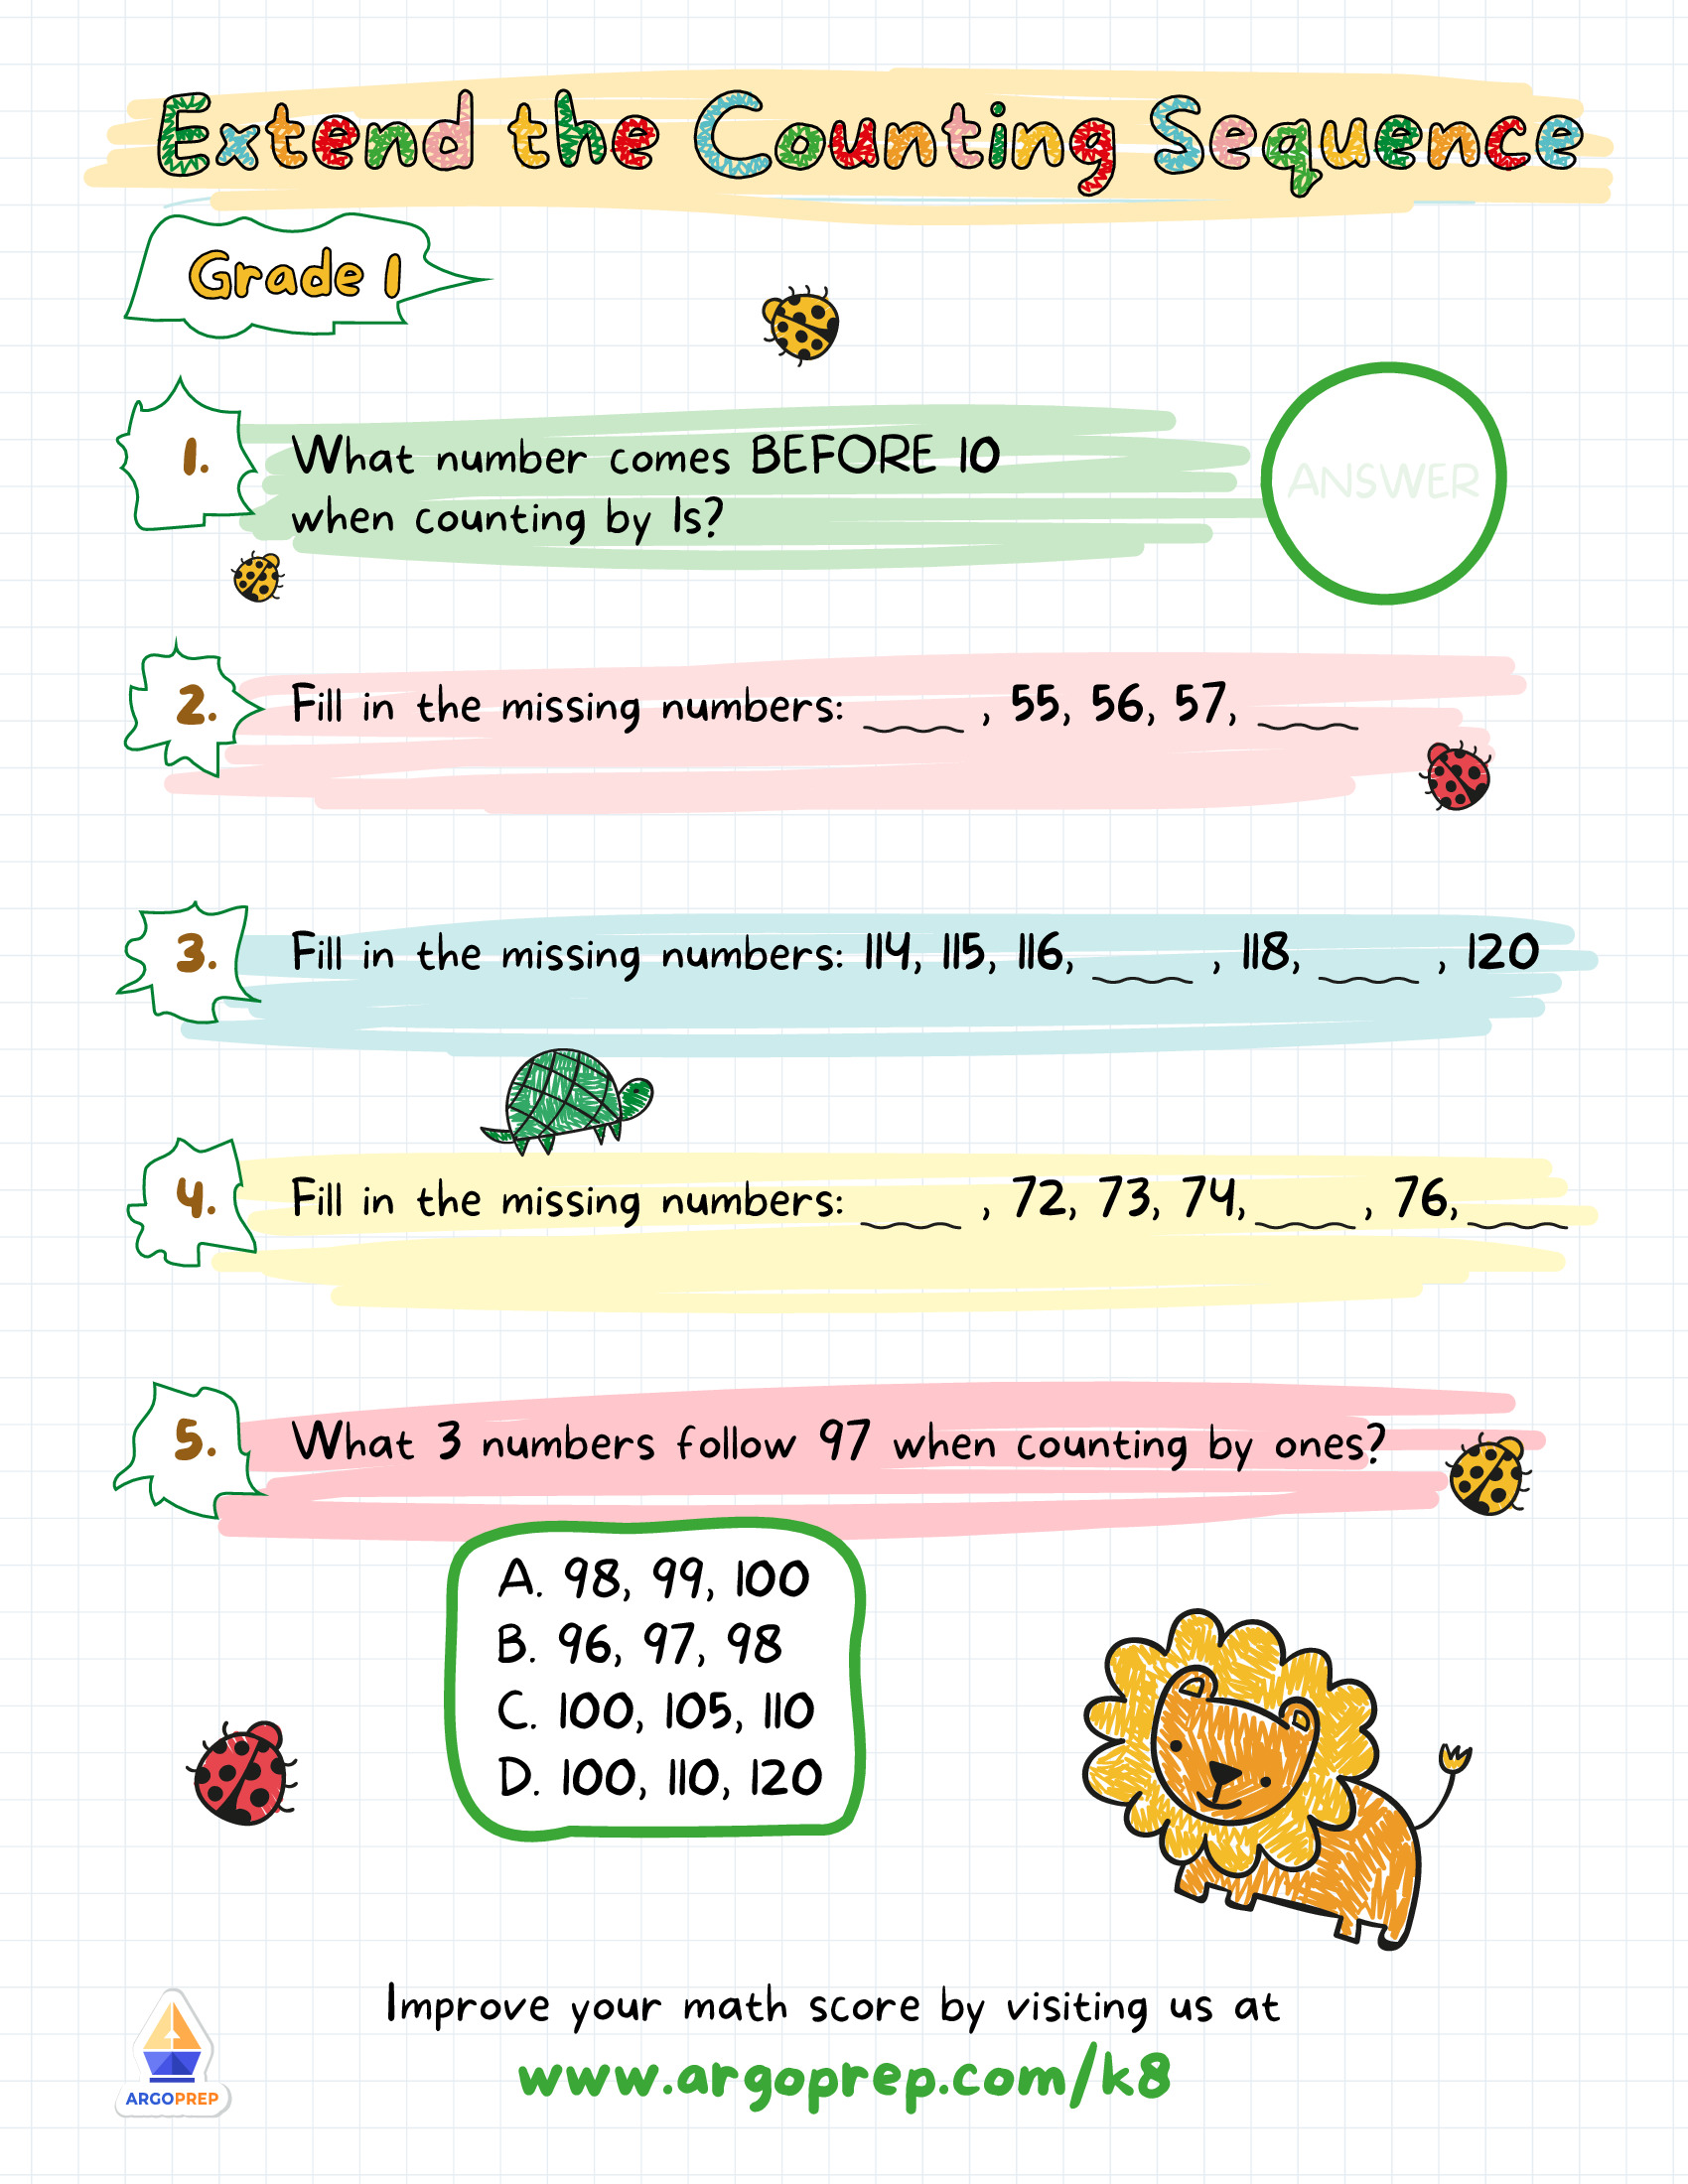 Extend the Counting Sequence
Grade 1
1.
What number comes BEFORE 10
when counting by 1s?
ANSWER
2.
Fill in the missing numbers: ____ , 55, 56, 57, ____
3.
Fill in the missing numbers: 114, 115, 116, ____ , 118, ____ , 120
4.
Fill in the missing numbers: ____ , 72, 73, 74, ____ , 76, ____
5.
What 3 numbers follow 97 when counting by ones?
A. 98, 99, 100
B. 96, 97, 98
C. 100, 105, 110
D. 100, 110, 120
Improve your math score by visiting us at
www.argoprep.com/k8
ARGOPREP